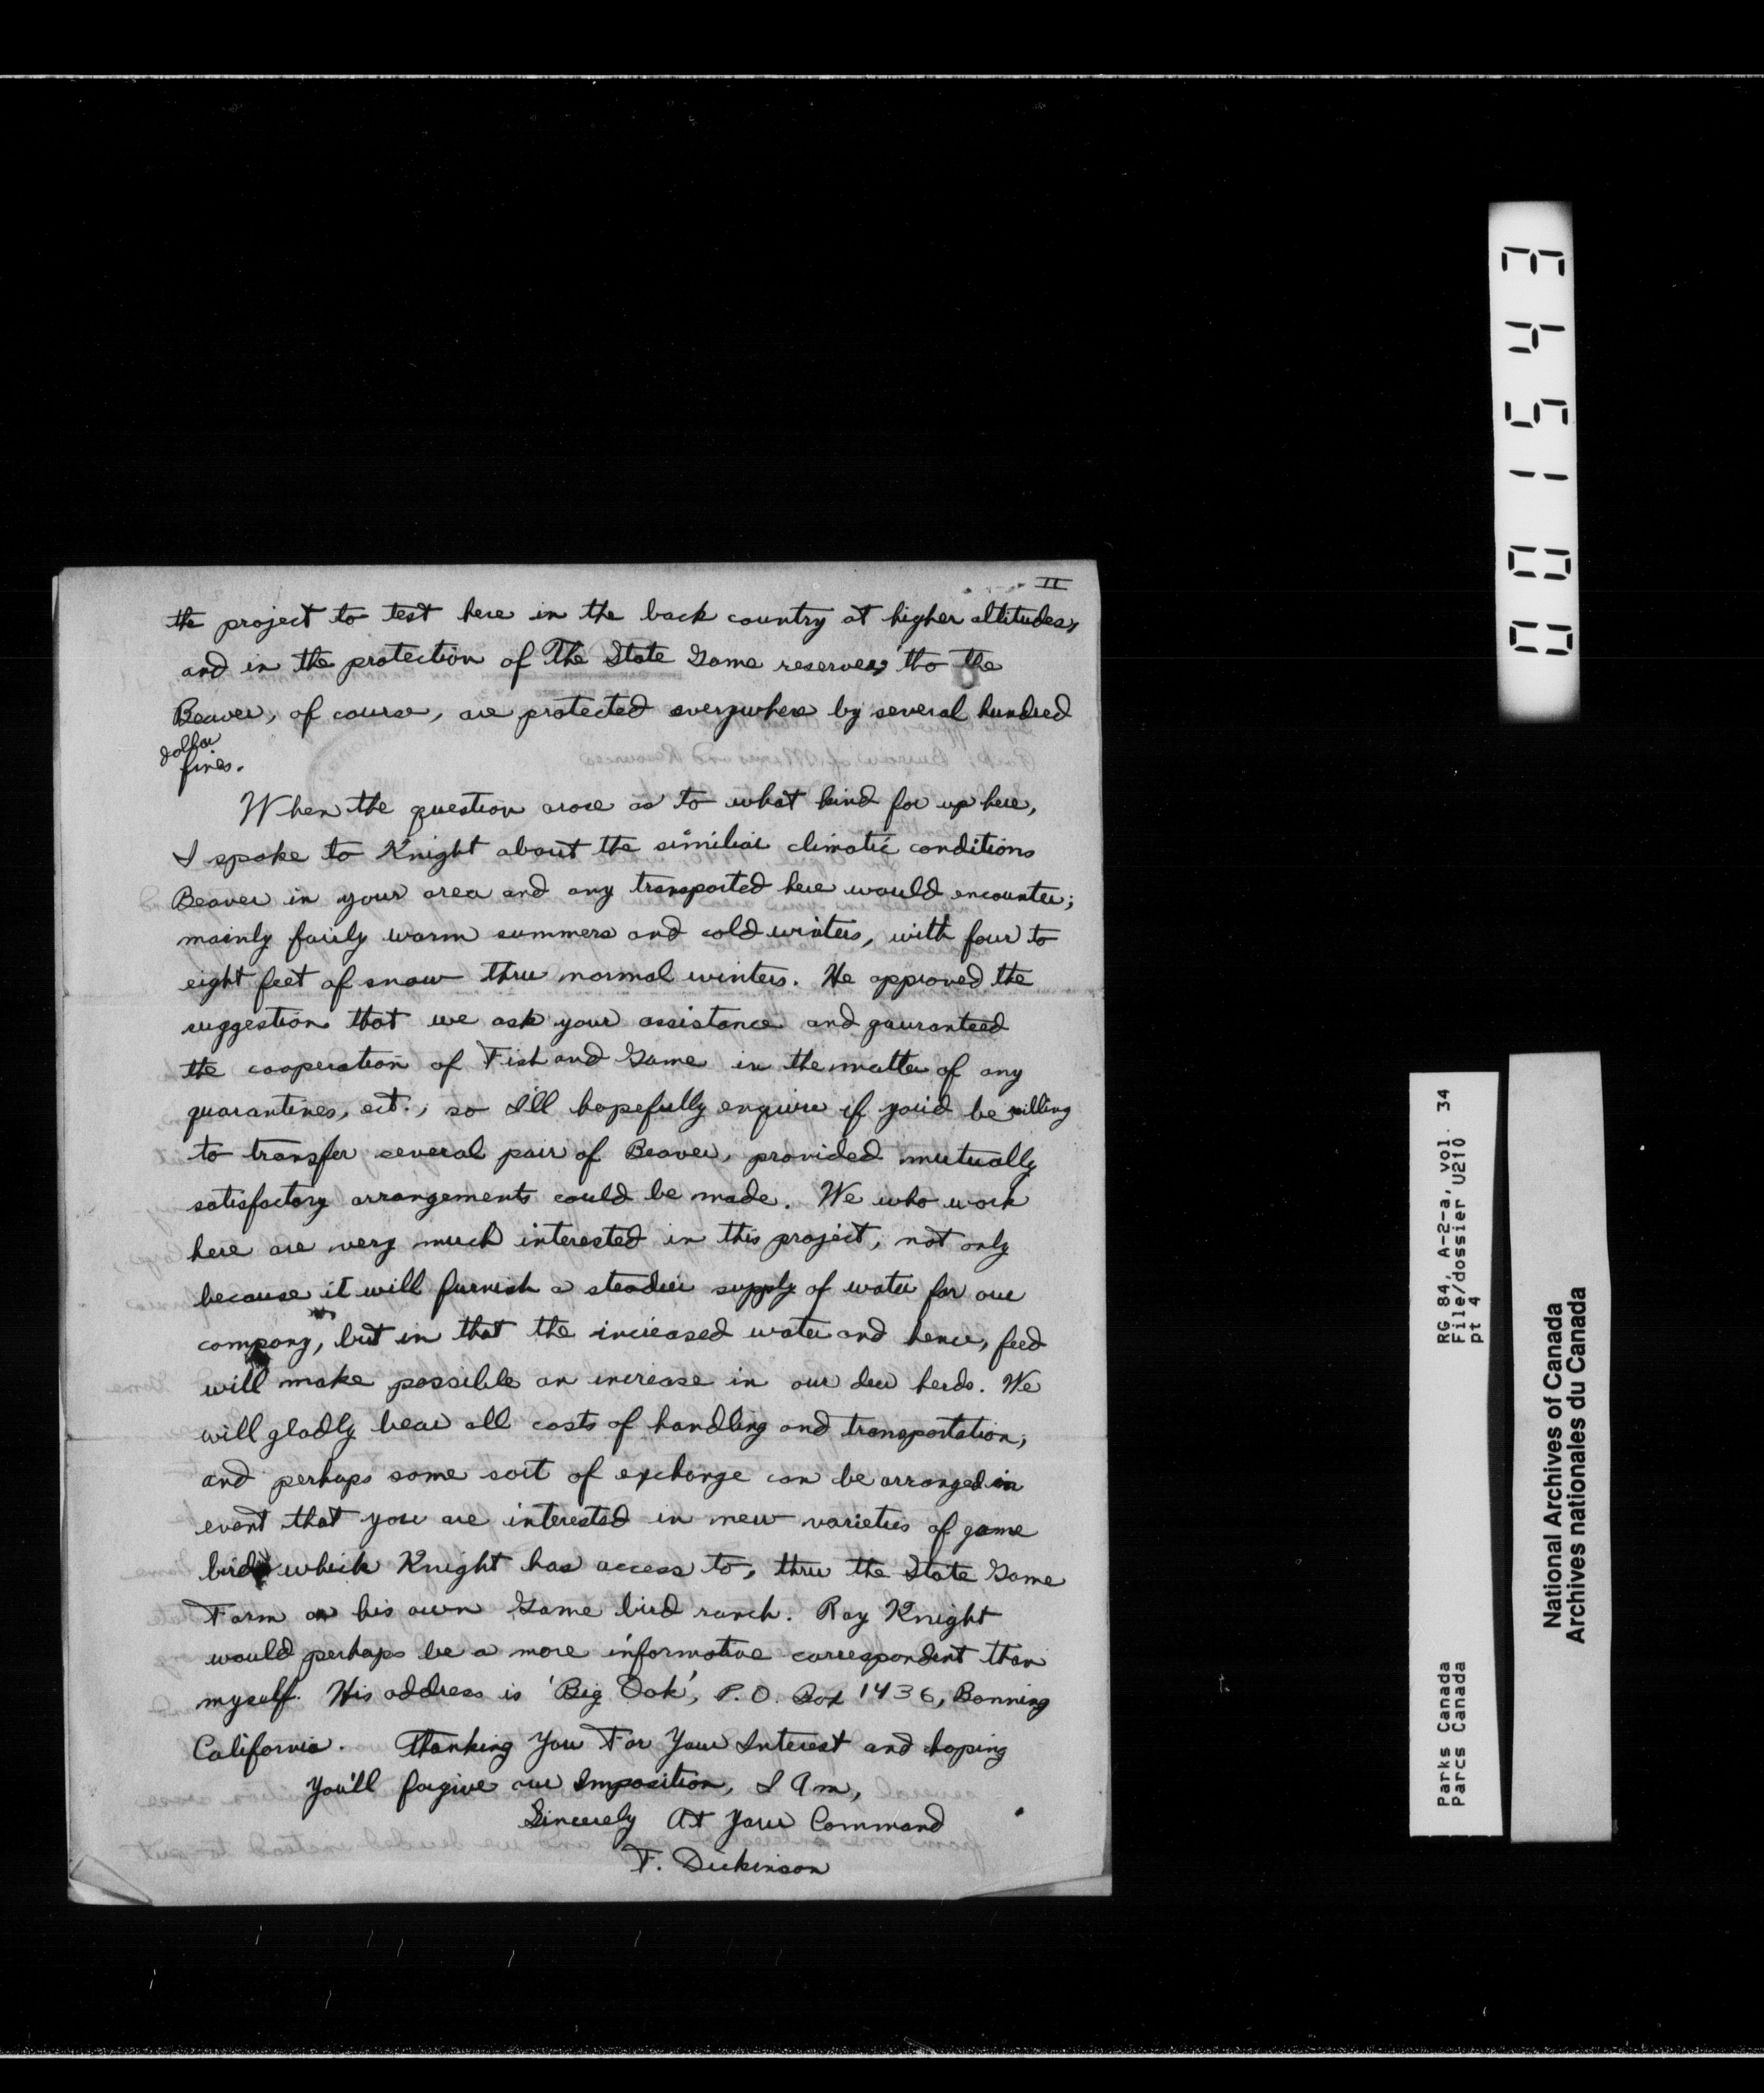 II
the project to test here in the back country at higher altitudes,
and in the protection of The State Game reserves, tho the
Beaver, of course, are protected everywhere by several hundred
dollar
fines.
When the question arose as to what kind for up here,
I spoke to Knight about the similiar climatic conditions
Beaver in your area and any transported here would encounter;
mainly fairly warm summers and cold winters, with four to
eight feet of snow thru normal winters. He approved the
suggestion that we ask your assistance and gauranteed
the cooperation of Fish and Game in the matter of any
quarantines, ect., so I'll hopefully enquire if you'd be willing
to transfer several pair of Beaver, provided mutually
satisfactory arrangements could be made. We who work
here are very much interested in this project, not only
because it will furnish a steadier supply of water for our
company, but in that the increased water and hence, feed
will make possible an increase in our deer herds. We
will gladly bear all costs of handling and transportation,
and perhaps some sort of exchange can be arranged in
event that you are interested in new varieties of game
birds which Knight has access to, thru the State Game
Farm or his own Game bird ranch. Ray Knight
would perhaps be a more informative correspondent than
myself. His address is 'Big Oak', P.O. Box 1436, Banning
California. Thanking You For Your Interest and hoping
You'll forgive our Imposition, I Am,
Sincerely At Your Command
F. Dickinson
001543
RG 84, A-2-a, vol. 34
File/dossier U210
pt 4
Parks Canada
Parcs Canada
National Archives of Canada
Archives nationales du Canada